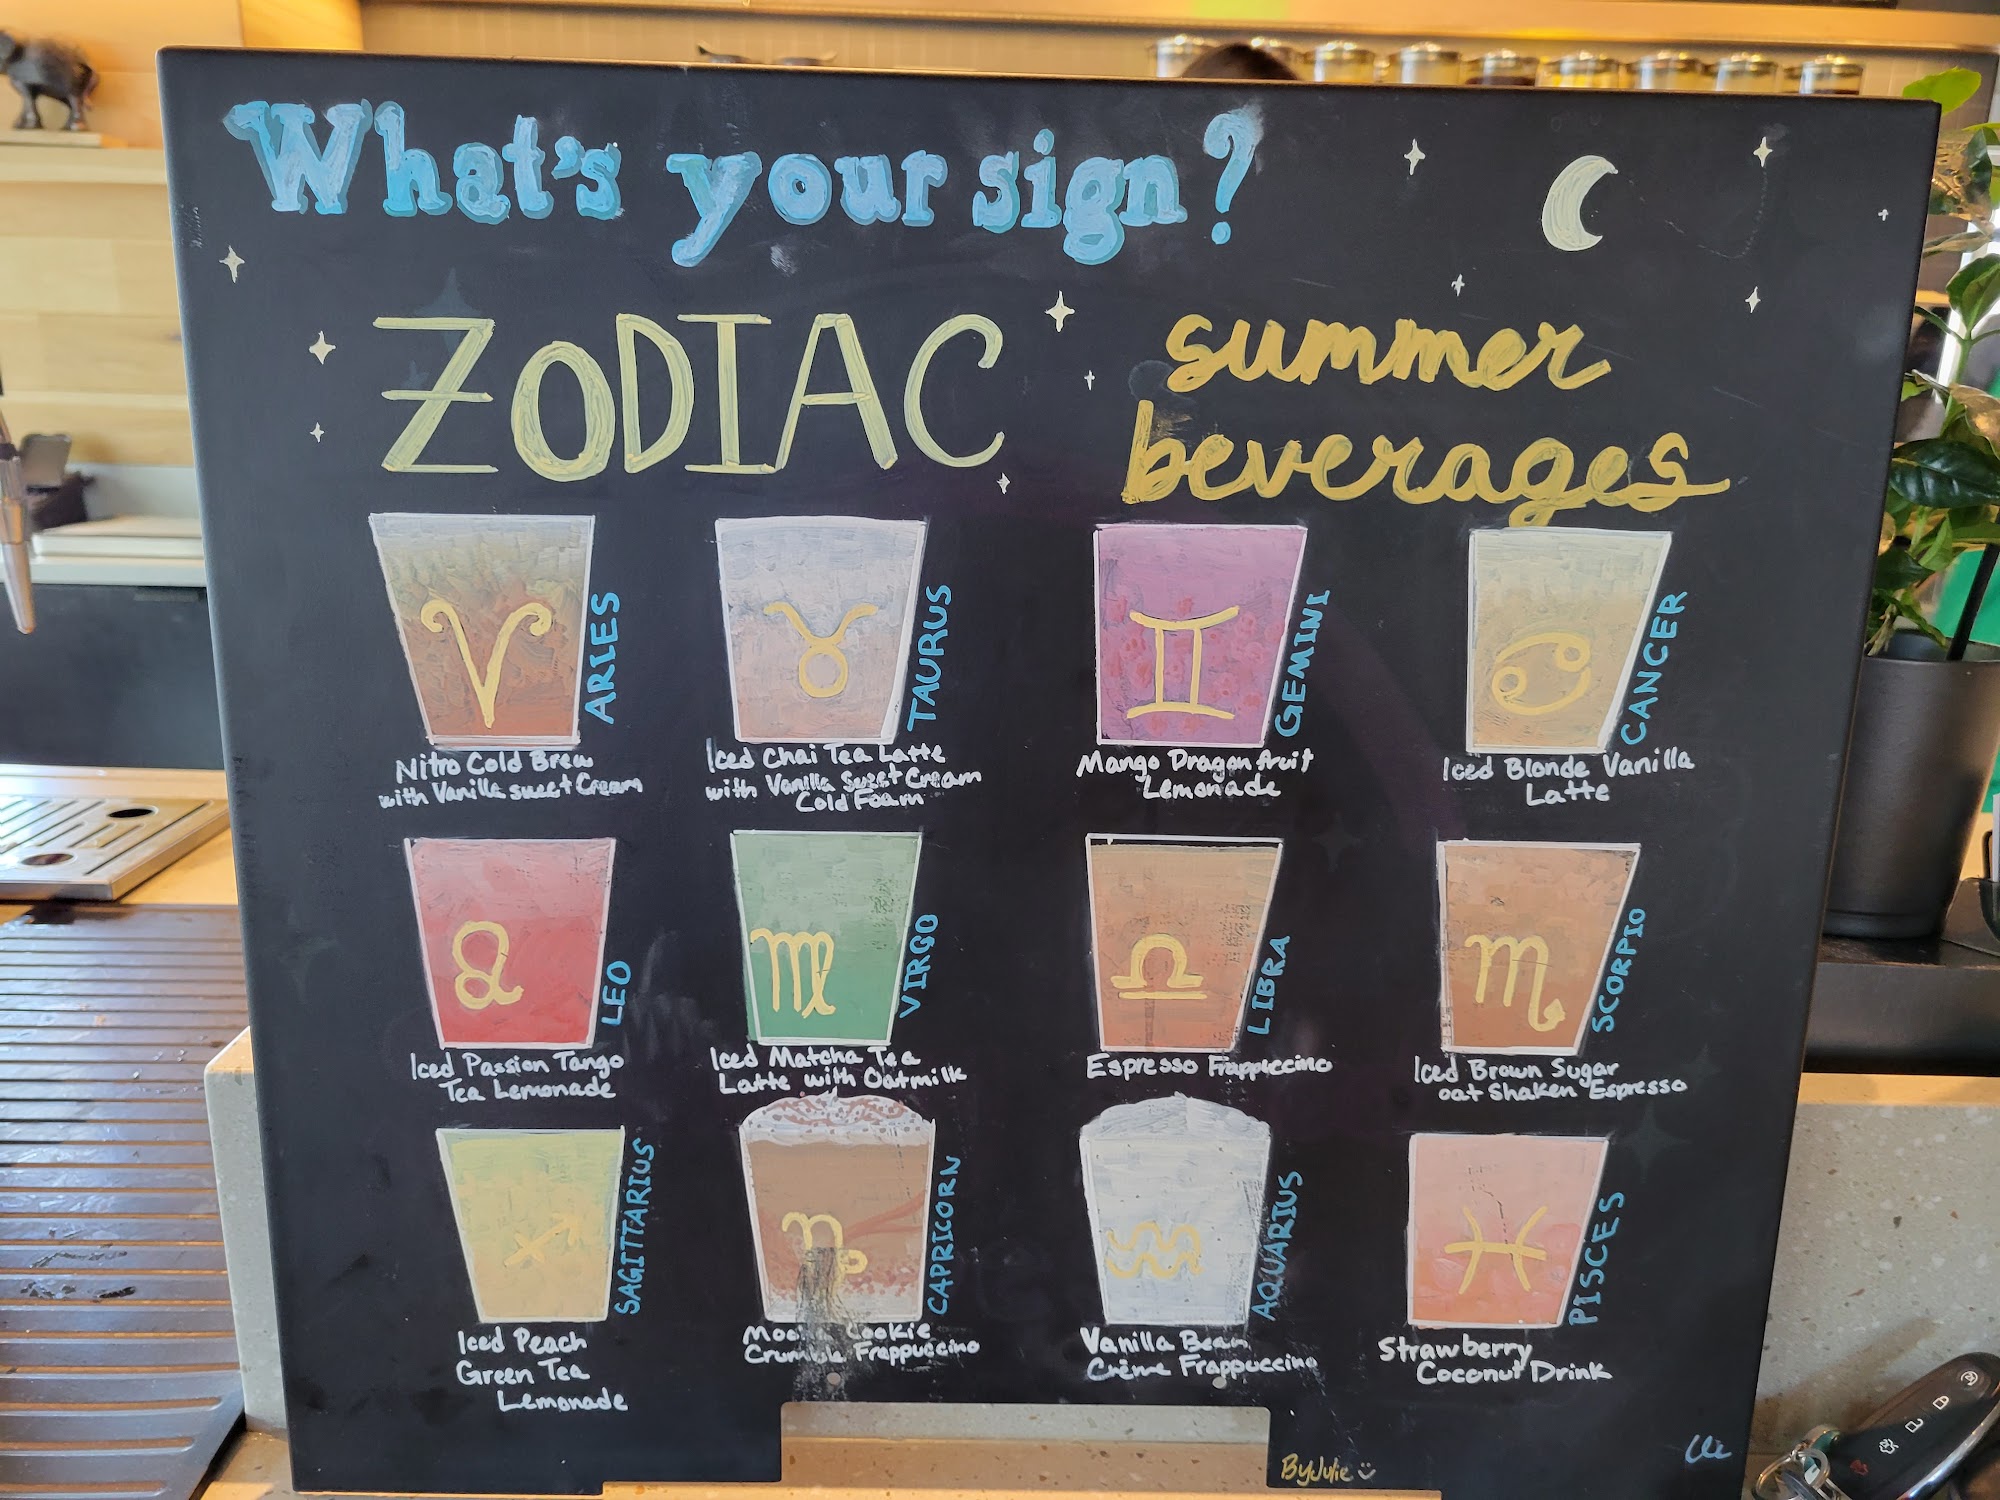 What's your sign?
ZODIAC
summer
beverages
ARIES
Nitro Cold Brew
with Vanilla sweet Cream
TAURUS
Iced Chai Tea Latte
with Vanilla Sweet Cream
Cold Foam
GEMINI
Mango Dragonfruit
Lemonade
CANCER
Iced Blonde Vanilla
Latte
LEO
Iced Passion Tango
Tea Lemonade
VIRGO
Iced Matcha Tea
Latte with Oatmilk
LIBRA
Espresso Frappuccino
SCORPIO
Iced Brown Sugar
oat Shaken Espresso
SAGITTARIUS
Iced Peach
Green Tea
Lemonade
CAPRICORN
Mocha Cookie
Crumble Frappuccino
AQUARIUS
Vanilla Bean
Crème Frappuccino
PISCES
Strawberry
Coconut Drink
By Julie